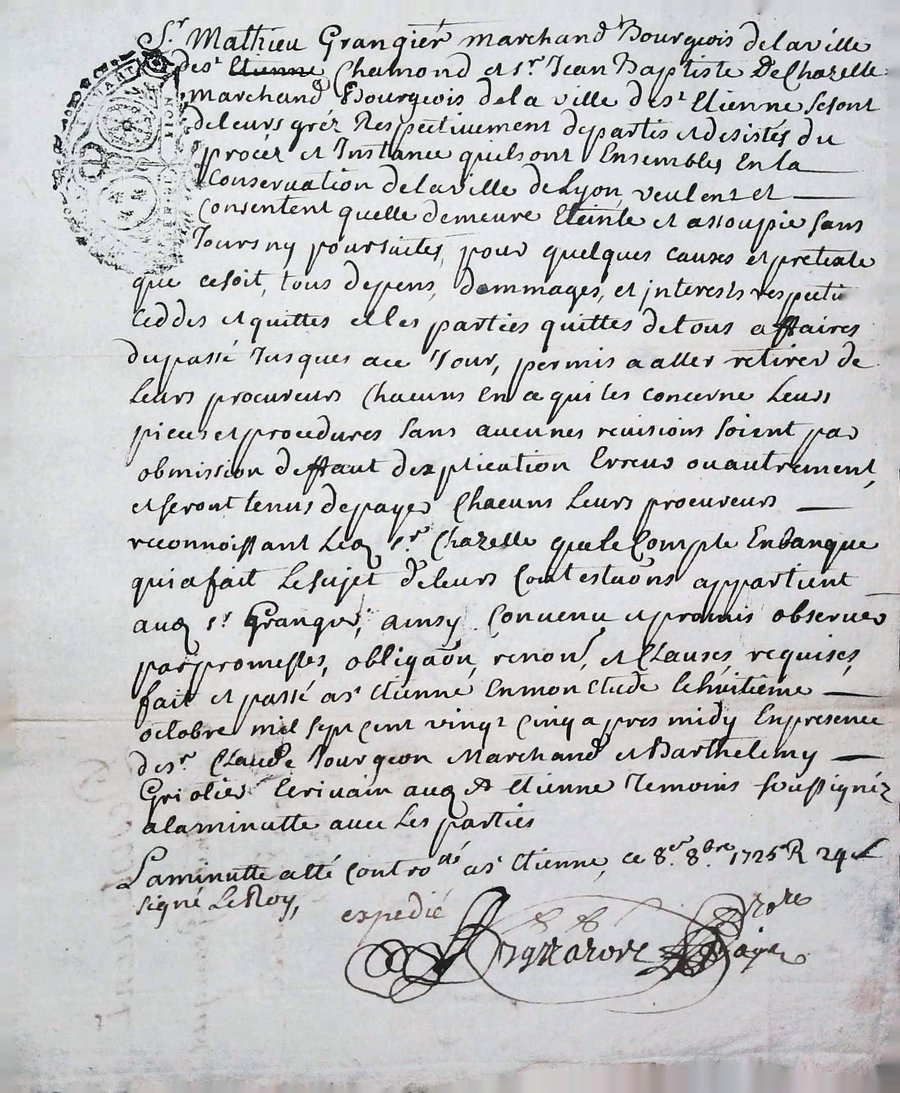 Sr. Mathieu Grangier marchand Bourgeois delaville
de st Etienne Chamond et sr. Jean Baptiste DeChazelle
marchand Bourgeois dela ville de st Etienne sesont
deleurs gréz Respectivement departis et desistés du
procez et Instance quilsont Ensembles En la
Conservation delaville de Lyon, veulent et
Consentent quelle demeure Eteinte et assoupie sans
Jours ny poursuites, pour quelques causes et pretexte
que cesoit, tous depens, dommages, et interests respecti
Ceddes et quittes et les parties quittes detous affaires
dupassé Jusques ace Jour, permis a aller retirer de
Leurs procureurs Chacuns En ce qui les concerne Leurs
pieces et procedures sans aucunes revisions soient par
obmission deffaut dexplication Erreur ou autrement,
et seront tenus depayer Chacuns Leurs procureurs
reconnoissant Led sr. Chazelle que le Compte Enbanque
qui a fait Lesujet de leurs Contestaons appartient
aud sr. Grangier, ainsy Convenu et promis observer
par promesses, obligaon, renonn, et Clauses requises,
fait et passé a st Etienne Enmon Etude le huitieme
octobre mil sept cent vingt cinq apres midy Enpresence
de sr. Claude Jourgeon Marchand et Barthelemy
Griolier Ecrivain aud st Etienne Temoins soussignéz
alaminutte avec Les parties
Laminutte a été Controllée a st Etienne, ce 8e. 8bre 1725 R 24
signé LeRoy,
expedié